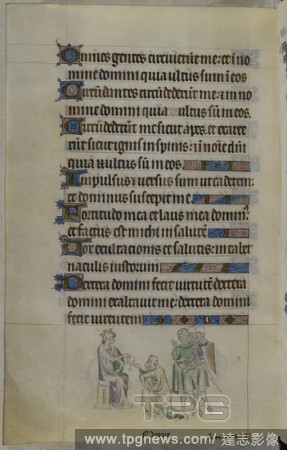 Omnes gentes circuierunt me: et i no
mine domini quia ultus sum i eos
Circũdantes circũdederũt me: in no
mine domini quia ultus sũ in eos.
Circũdederũt me sicut apes. et exarse
rũt sicut ignis in spinis: i noïe dñi
quia ultus sũ in eos.
Impulsus eversus sum ut caderem:
et dominus suscepit me.
Fortitudo mea et laus mea domin9:
et factus est michi in salutẽ
Vox exultacionis et salutis: in taber
naculis iustorum
Dextera domini fecit virtutẽ dextera
domini exaltavit me: dextera domini
fecit virtutem
TPG
www.tpgnews.com/達志影像